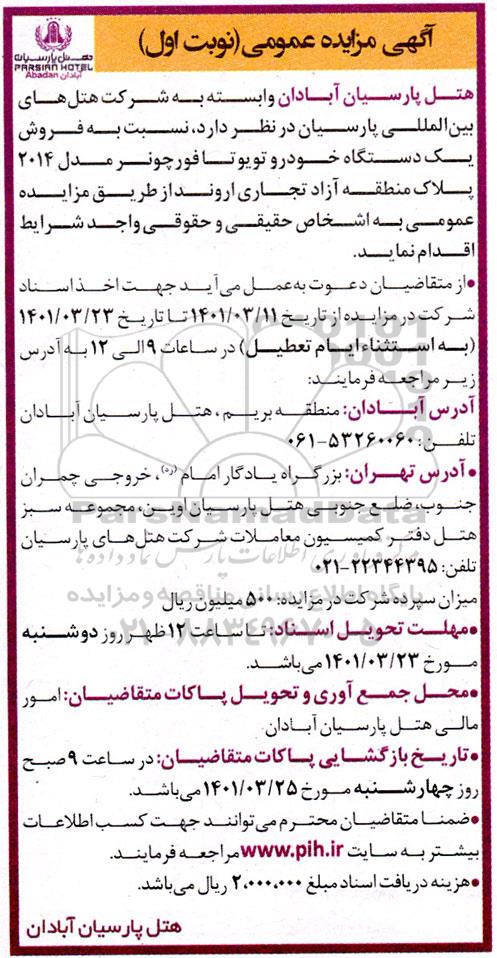 آگهی مزایده عمومی (نوبت اول)
هتل پارسیان
PARSIAN HOTEL
Abadan آبادان
هتل پارسیان آبادان وابسته به شرکت هتل‌های
بین‌المللی پارسیان در نظر دارد، نسبت به فروش
یک دستگاه خودرو تویوتا فورچونر مدل ۲۰۱۴
پلاک منطقه آزاد تجاری اروند از طریق مزایده
عمومی به اشخاص حقیقی و حقوقی واجد شرایط
اقدام نماید.
•از متقاضیان دعوت به‌عمل می‌آید جهت اخذ اسناد
شرکت در مزایده از تاریخ ۱۴۰۱/۰۳/۱۱ تا تاریخ ۱۴۰۱/۰۳/۲۳
(به استثناء ایام تعطیل) در ساعات ۹ الی ۱۲ به آدرس
زیر مراجعه فرمایند:
آدرس آبادان: منطقه بریم، هتل پارسیان آبادان
تلفن: ۵۳۲۶۰۰۶۰-۰۶۱
•آدرس تهران: بزرگراه یادگار امام (ره)، خروجی چمران
جنوب، ضلع جنوبی هتل پارسیان اوین، مجموعه سبز
هتل دفتر کمیسیون معاملات شرکت هتل‌های پارسیان
تلفن: ۲۲۳۴۴۳۹۵-۰۲۱
میزان سپرده شرکت در مزایده: ۵۰۰ میلیون ریال
•مهلت تحویل اسناد: تا ساعت ۱۲ ظهر روز دوشنبه
مورخ ۱۴۰۱/۰۳/۲۳ می‌باشد.
•محل جمع آوری و تحویل پاکات متقاضیان: امور
مالی هتل پارسیان آبادان
•تاریخ بازگشایی پاکات متقاضیان: در ساعت ۹ صبح
روز چهارشنبه مورخ ۱۴۰۱/۰۳/۲۵ می‌باشد.
•ضمنا متقاضیان محترم می‌توانند جهت کسب اطلاعات
بیشتر به سایت www.pih.ir مراجعه فرمایند.
•هزینه دریافت اسناد مبلغ ۲,۰۰۰,۰۰۰ ریال می‌باشد.
هتل پارسیان آبادان
ParsNamadData
پایگاه اطلاع رسانی مناقصه و مزایده